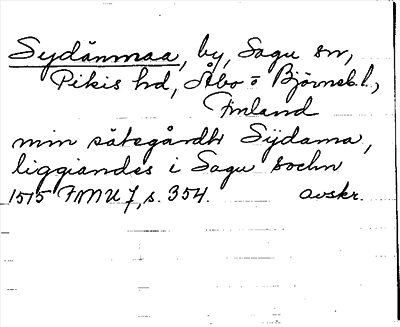 Sydänmaa, by, Sagu sn,
Pikis hd, Åbo = Björneb. l.,
Finland
min sätegårdh Sÿdama,
liggiandes i Sagu sochn
1515 FMU 7, s. 354. avskr.